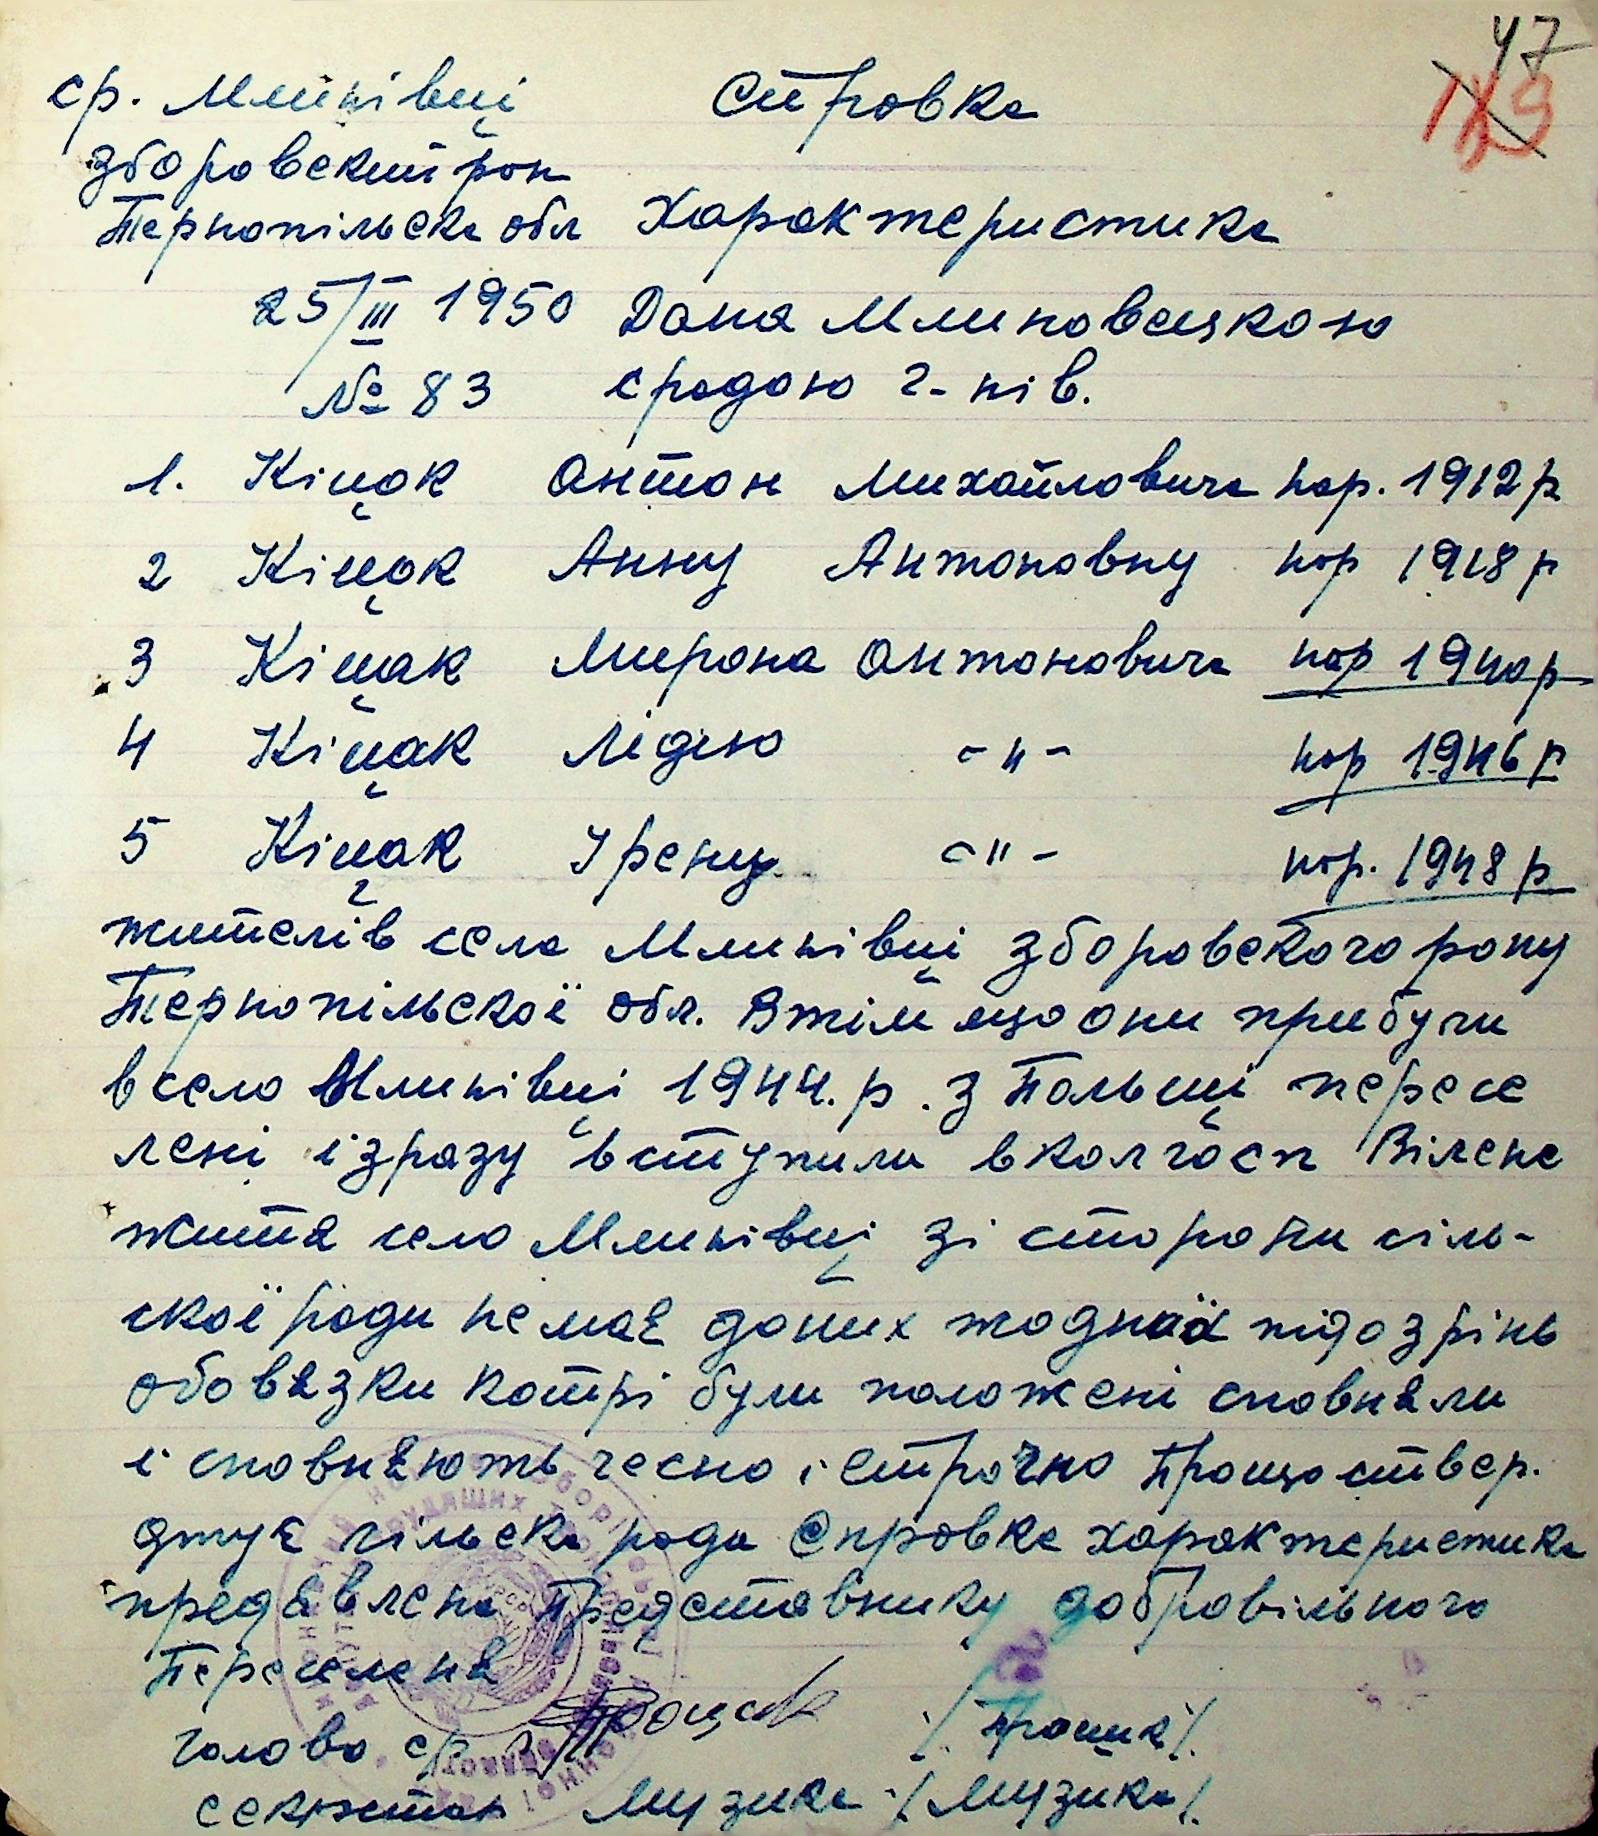 47
ср. Млинівці Справка
Зборовский рон
Тернопільска обл Характеристика
25/III 1950 Дана Млиновецкою
№ 83 срадою г-нів.
1. Кіцак Антон Михайловича нар. 1912 р
2 Кіцак Анну Антоновну нар 1918 р
3 Кіцак Мирона Антоновича нар 1940 р
4 Кіцак Лідію -"- нар 1946 р
5 Кіцак Ірену -"- нар. 1948 р
жителів села Млинівці Зборовского рону
Тернопільскої обл. Втім що они прибули
в село Млинівці 1944. р. з Польщі пересе
лені ізразу вступили вколгосп Вілене
житя село Млинівці зі сторони сіль-
скої ради немає даних жодних підозрінь
обовязки котрі були положені сповняли
і сповняють чесно і строчно Прощо ствер.
джує сільска рада Справка характеристика
предявлена Представнику добровільного
Переселеня
голова ср /Процик/.
секретар Музика /Музика/.